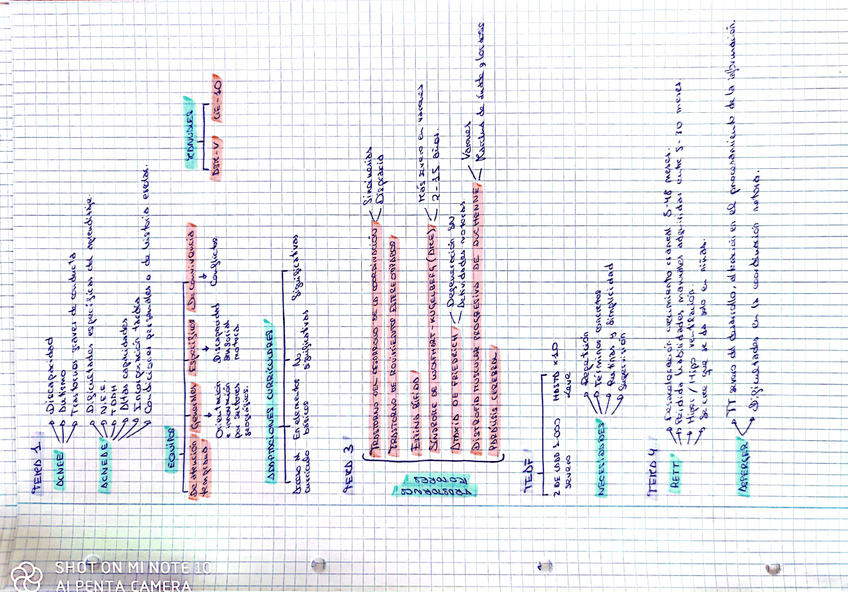 TEMA 1
ACNEE
Discapacidad
Autismo
Trastornos graves de conducta
ACNEAE
Dificultades específicas del aprendizaje.
N.E.E.
TDAH
Altas capacidades
Incorporación tardía
Condiciones personales o de historia escolar.
EQUIPOS
De atención temprana
Generales
Orientación e innovación por sectores geográficos.
Específicos
Discapacidad
motora.
De convivencia
Conflictos
MANUALES
DSM-V
CIE-10
ADAPTACIONES CURRICULARES
Acceso al currículo
En elementos básicos
No significativas
Significativas
TEMA 3
TRASTORNOS MOTORES
TRASTORNO DEL DESARROLLO DE LA COORDINACIÓN
Sincinesias
Dispraxia
TRASTORNO DE MOVIMIENTO ESTEREOTIPADO
ESPINA BÍFIDA
SÍNDROME DE WOLFHART-KUGELBERG (AME)
Más severo en varones
2-15 años.
ATAXIA DE FRIEDRICH
Degeneración SN
Actividades motoras
DISTROFIA MUSCULAR PROGRESIVA DE DUCHENNE
Varones
PARÁLISIS CEREBRAL
TEAF
2 DE CADA 1.000
severo
HASTA x10
leve
NECESIDADES
Repetición
Términos concretos
Rutinas y simplicidad
Supervisión
TEMA 4
RETT
Desaceleración crecimiento craneal 5-48 meses.
Pérdida habilidades manuales adquiridas entre 5-30 meses
Hiper/Hipo ventilación.
Se cree que se da solo en niñas.
ASPERGER
TT severo de desarrollo, alteración en el procesamiento de la información.
Dificultades en la coordinación motora.
SHOT ON MI NOTE 10
AI PENTA CAMERA